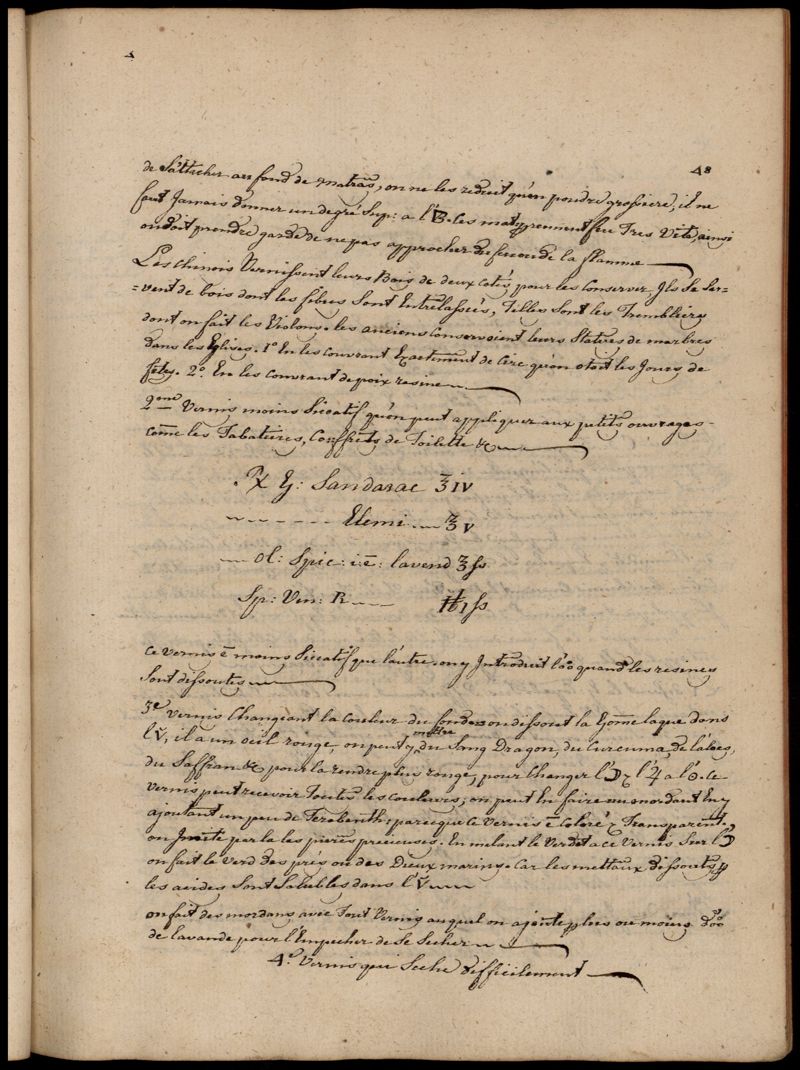 48
de S'attacher au fond de matras, on ne les reduit qu'en poudre grossiere, il ne
faut Jamais donner un degré Sup: a l'B. les mat: prennent feu Tres Vite, ainsi
on doit prendre garde de ne pas approcher de la flamme
Les Chinois Vernissent leurs Bois de deux cotés, pour les conserver Jls Se Ser-
=vent de bois dont les fibres Sont Entrelassés, Telles Sont les Trembliers
dont on fait les Violons. les anciens Conservoient leurs Statues de marbres
dans les Eglises. 1° En les couvrant Exactement de Cire qu'on otoit les Jours de
fete. 2°. En les couvrant de poix resine
2eme Vernis moins Siccatif qu'on peut appliquer aux petits ouvrages
come les Tabatieres, Coffrets de Toilette &
℞ G: Sandarac ℥ IV
Elemi ℥ V
ol: Spic: i:ē: lavend ℥ ſs
Sp: Vin: R ℔ I ſs
Ce vernis ē moins Siccatif que l'autre. on y Introduit l'oo quand les resines
Sont dissoutes
3e Vernis Changeant la Couleur du fond. on dissout la Gōme laque dans
l'V, il a un oeil rouge, on peut y mettre du Sang Dragon, du Curcuma, de l'aloes,
du Saffran & pour la rendre plus rouge, pour Changer l'☽ & l'♃ a l'☉. Ce
Vernis peut recevoir Toutes les couleurs; on peut En faire un mordant En y
ajoutant un peu de Terebenth: parceque Ce Vernis ē Coloré & Transparent.
on Jmite par la les pierres precieuses. En melant le Verdet a ce Vernis Sur l'☽
on fait le Verd des prés ou des Dieux marins. Car les mettaux dissouts p
les acides Sont Solubles dans l'V
on fait des mordans avec Tout Vernis auquel on ajoute plus ou moins d'oo
de lavande pour l'Empecher de Se Secher
4° Vernis qui Seche difficilement